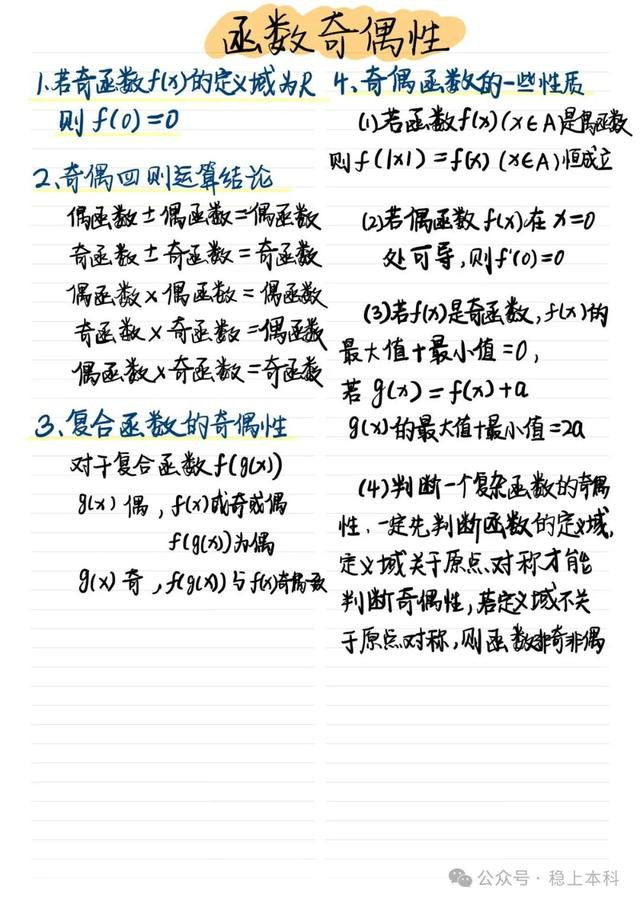 函数奇偶性
1、若奇函数f(x)的定义域为R
则 f(0)=0
2、奇偶四则运算结论
偶函数±偶函数=偶函数
奇函数±奇函数=奇函数
偶函数×偶函数=偶函数
奇函数×奇函数=偶函数
偶函数×奇函数=奇函数
3、复合函数的奇偶性
对于复合函数f(g(x))
g(x) 偶, f(x)或奇或偶
f(g(x))为偶
g(x) 奇, f(g(x))与f(x)奇偶一致
4、奇偶函数的一些性质
(1)若函数f(x)(x∈A)是偶函数
则f(|x|)=f(x) (x∈A)恒成立
(2)若偶函数f(x)在x=0
处可导,则f'(0)=0
(3)若f(x)是奇函数,f(x)的
最大值+最小值=0,
若 g(x)=f(x)+a
g(x)的最大值+最小值=2a
(4)判断一个复杂函数的奇偶
性、一定先判断函数的定义域,
定义域关于原点对称才能
判断奇偶性,若定义域不关
于原点对称,则函数非奇非偶
公众号·稳上本科